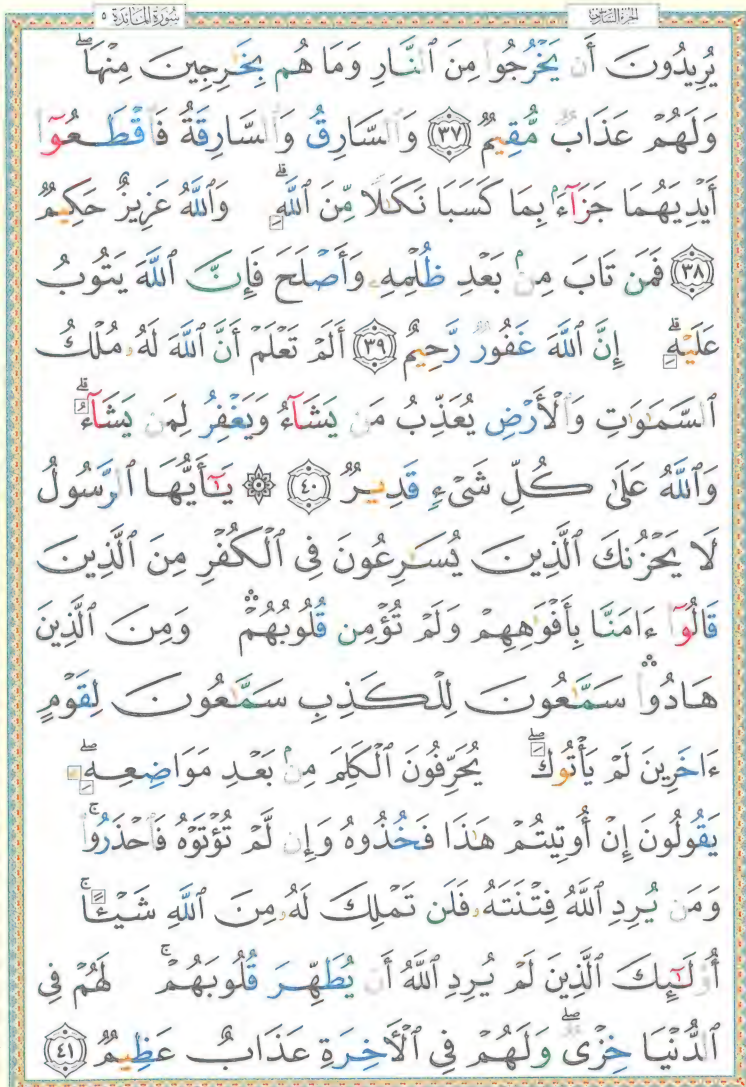 سُورَةُ المَائدَة ٥ الجزء السادس
يُرِيدُونَ أَن يَخْرُجُوا۟ مِنَ ٱلنَّارِ وَمَا هُم بِخَٰرِجِينَ مِنْهَاۖ
وَلَهُمْ عَذَابٌ مُّقِيمٌ ٣٧ وَٱلسَّارِقُ وَٱلسَّارِقَةُ فَٱقْطَعُوٓا۟
أَيْدِيَهُمَا جَزَآءًۢ بِمَا كَسَبَا نَكَٰلًا مِّنَ ٱللَّهِۗ وَٱللَّهُ عَزِيزٌ حَكِيمٌ
٣٨ فَمَن تَابَ مِنۢ بَعْدِ ظُلْمِهِۦ وَأَصْلَحَ فَإِنَّ ٱللَّهَ يَتُوبُ
عَلَيْهِۗ إِنَّ ٱللَّهَ غَفُورٌ رَّحِيمٌ ٣٩ أَلَمْ تَعْلَمْ أَنَّ ٱللَّهَ لَهُۥ مُلْكُ
ٱلسَّمَٰوَٰتِ وَٱلْأَرْضِ يُعَذِّبُ مَن يَشَآءُ وَيَغْفِرُ لِمَن يَشَآءُۗ
وَٱللَّهُ عَلَىٰ كُلِّ شَىْءٍ قَدِيرٌ ٤٠ ۞ يَٰٓأَيُّهَا ٱلرَّسُولُ
لَا يَحْزُنكَ ٱلَّذِينَ يُسَٰرِعُونَ فِى ٱلْكُفْرِ مِنَ ٱلَّذِينَ
قَالُوٓا۟ ءَامَنَّا بِأَفْوَٰهِهِمْ وَلَمْ تُؤْمِن قُلُوبُهُمْۛ وَمِنَ ٱلَّذِينَ
هَادُوا۟ۛ سَمَّٰعُونَ لِلْكَذِبِ سَمَّٰعُونَ لِقَوْمٍ
ءَاخَرِينَ لَمْ يَأْتُوكَۖ يُحَرِّفُونَ ٱلْكَلِمَ مِنۢ بَعْدِ مَوَاضِعِهِۦۖ
يَقُولُونَ إِنْ أُوتِيتُمْ هَٰذَا فَخُذُوهُ وَإِن لَّمْ تُؤْتَوْهُ فَٱحْذَرُوا۟ۚ
وَمَن يُرِدِ ٱللَّهُ فِتْنَتَهُۥ فَلَن تَمْلِكَ لَهُۥ مِنَ ٱللَّهِ شَيْـًٔاۚ
أُو۟لَٰٓئِكَ ٱلَّذِينَ لَمْ يُرِدِ ٱللَّهُ أَن يُطَهِّرَ قُلُوبَهُمْۚ لَهُمْ فِى
ٱلدُّنْيَا خِزْىٌۖ وَلَهُمْ فِى ٱلْأَخِرَةِ عَذَابٌ عَظِيمٌ ٤١